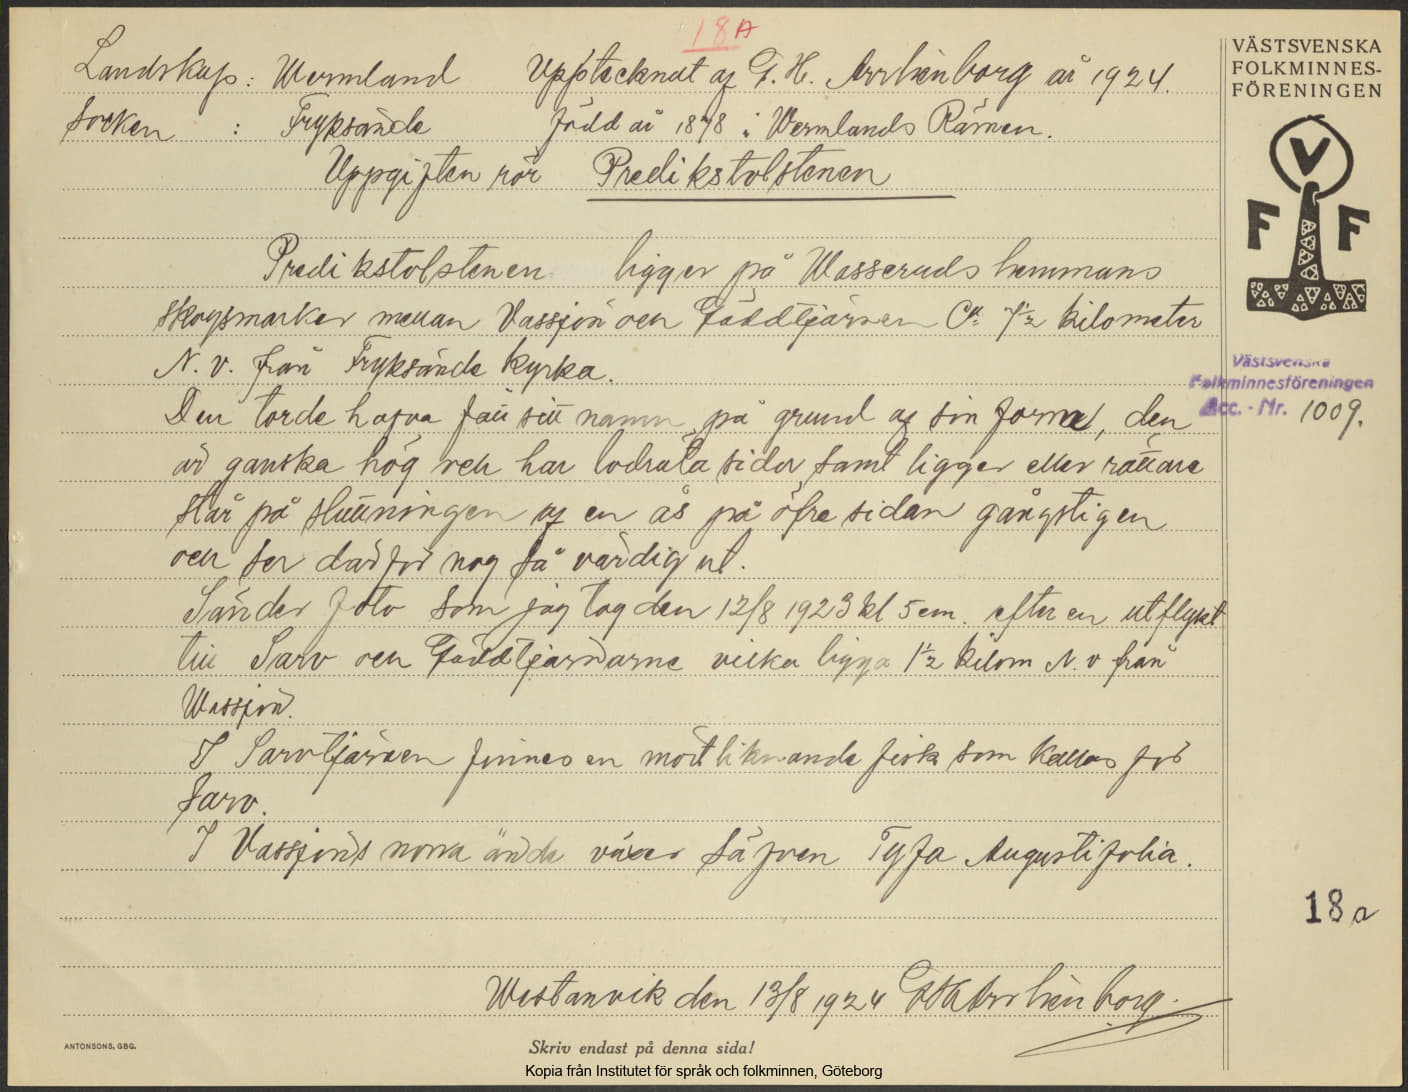 18A
Landskap: Wermland Upptecknat af G. H. Arrhénborg år 1924.
Socken : Fryksände född år 1878 i Wermlands Rämen.
Uppgiften rör Predikstolstenen
Predikstolstenen ligger på Wasseruds hemmans
skogsmarker mellan Vassjön och Gäddtjärnen Ca 7½ kilometer
N. v. från Fryksände kyrka.
Den torde hafva fått sitt namn på grund af sin form, den
är ganska hög och har lodräta sidor samt ligger eller rättare
står på sluttningen af en ås på öfre sidan gångstigen
och ser därför nog så värdig ut.
Sänder foto som jag tog den 12/8 1923 kl 5 em. efter en utflykt
till Sarv och Gäddtjärnarne vilka ligga 1½ kilom N. v från
Wassjön.
I Sarvtjärnen finnes en mört liknande fisk som kallas för
Sarv.
I Vassjöns norra ände växer säfven Tyfa Augustifolia.
Westanvik den 13/8 1924 G H Arrhénborg.
VÄSTSVENSKA
FOLKMINNES-
FÖRENINGEN
V
F F
Västsvenska
Folkminnesföreningen
Acc.-Nr. 1009.
18 a
ANTONSONS, GBG.
Skriv endast på denna sida!
Kopia från Institutet för språk och folkminnen, Göteborg